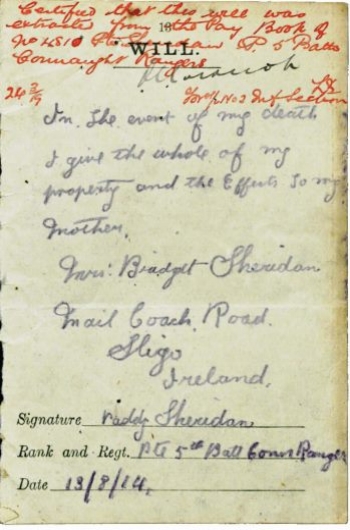 Certified that this will was
18
extracted from the Pay Book of
WILL.
No 4810 Pte Sheridan P 5 Batt
Connaught Rangers
24
for No 2 Inf Section
In the event of my death
I give the whole of my
property and the Effects to my
Mother,
Mrs: Bradget Sheridan
Mail Coach Road.
Sligo
Ireland,
Signature Paddy Sheridan
Rank and Regt. Pte 5th Batt Conn Rangers
Date 13/8/14,